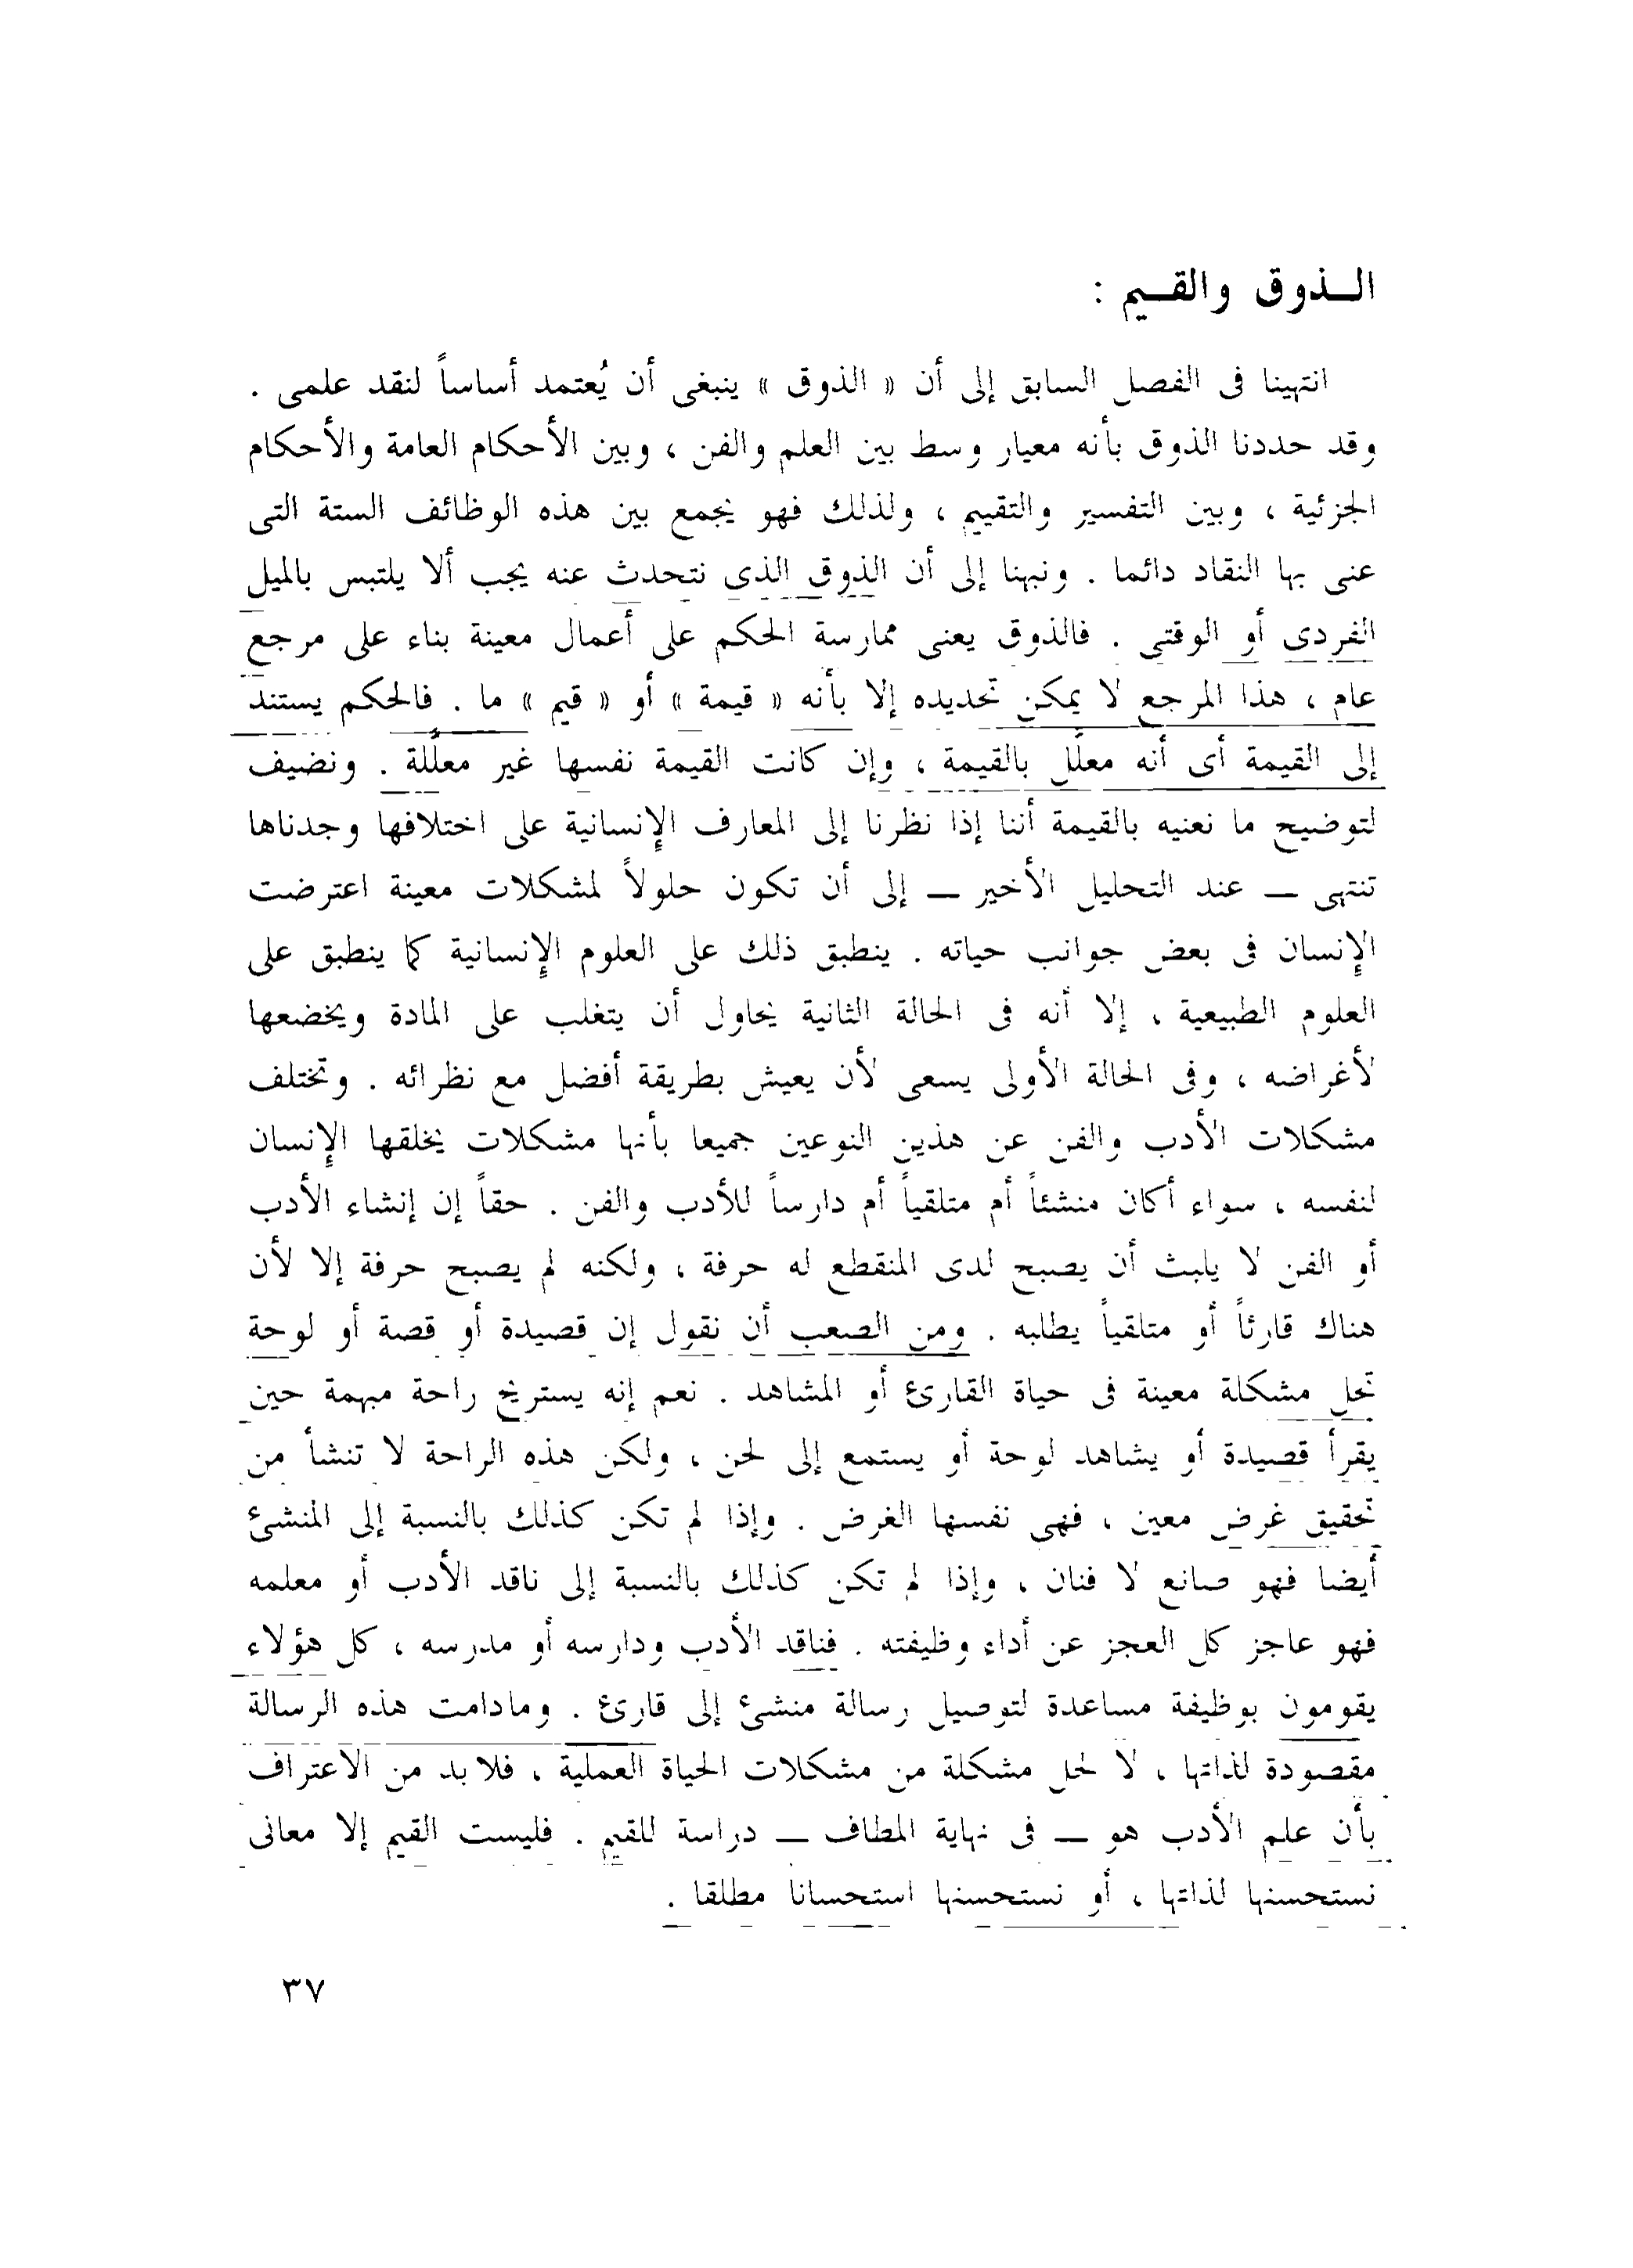 الـذوق والقـيم :
انتهينا فى الفصل السابق إلى أن « الذوق » ينبغى أن يُعتمد أساساً لنقد علمى .
وقد حددنا الذوق بأنه معيار وسط بين العلم والفن ، وبين الأحكام العامة والأحكام
الجزئية ، وبين التفسير والتقييم ، ولذلك فهو يجمع بين هذه الوظائف الستة التى
عنى بها النقاد دائما . ونبهنا إلى أن الذوق الذى نتحدث عنه يجب ألا يلتبس بالميل
الفردى أو الوقتى . فالذوق يعنى ممارسة الحكم على أعمال معينة بناء على مرجع
عام ، هذا المرجع لا يمكن تحديده إلا بأنه « قيمة » أو « قيم » ما . فالحكم يستند
إلى القيمة أى أنه معلَّل بالقيمة ، وإن كانت القيمة نفسها غير معلَّلة . ونضيف
لتوضيح ما نعنيه بالقيمة أننا إذا نظرنا إلى المعارف الإنسانية على اختلافها وجدناها
تنتهى — عند التحليل الأخير — إلى أن تكون حلولاً لمشكلات معينة اعترضت
الإنسان فى بعض جوانب حياته . ينطبق ذلك على العلوم الإنسانية كما ينطبق على
العلوم الطبيعية ، إلا أنه فى الحالة الثانية يحاول أن يتغلب على المادة ويخضعها
لأغراضه ، وفى الحالة الأولى يسعى لأن يعيش بطريقة أفضل مع نظرائه . وتختلف
مشكلات الأدب والفن عن هذين النوعين جميعا بأنها مشكلات يخلقها الإنسان
لنفسه ، سواء أكان منشئاً أم متلقياً أم دارساً للأدب والفن . حقاً إن إنشاء الأدب
أو الفن لا يلبث أن يصبح لدى المنقطع له حرفة ، ولكنه لم يصبح حرفة إلا لأن
هناك قارئاً أو متلقياً يطلبه . ومن الصعب أن نقول إن قصيدة أو قصة أو لوحة
تحل مشكلة معينة فى حياة القارئ أو المشاهد . نعم إنه يستريح راحة مبهمة حين
يقرأ قصيدة أو يشاهد لوحة أو يستمع إلى لحن ، ولكن هذه الراحة لا تنشأ من
تحقيق غرض معين ، فهى نفسها الغرض . وإذا لم تكن كذلك بالنسبة إلى المنشئ
أيضا فهو صانع لا فنان ، وإذا لم تكن كذلك بالنسبة إلى ناقد الأدب أو معلمه
فهو عاجز كل العجز عن أداء وظيفته . فناقد الأدب ودارسه أو مدرسه ، كل هؤلاء
يقومون بوظيفة مساعدة لتوصيل رسالة منشئ إلى قارئ . ومادامت هذه الرسالة
مقصودة لذاتها ، لا لحل مشكلة من مشكلات الحياة العملية ، فلابد من الاعتراف
بأن علم الأدب هو — فى نهاية المطاف — دراسة للقيم . فليست القيم إلا معانى
نستحسنها لذاتها ، أو نستحسنها استحسانا مطلقا .
٣٧